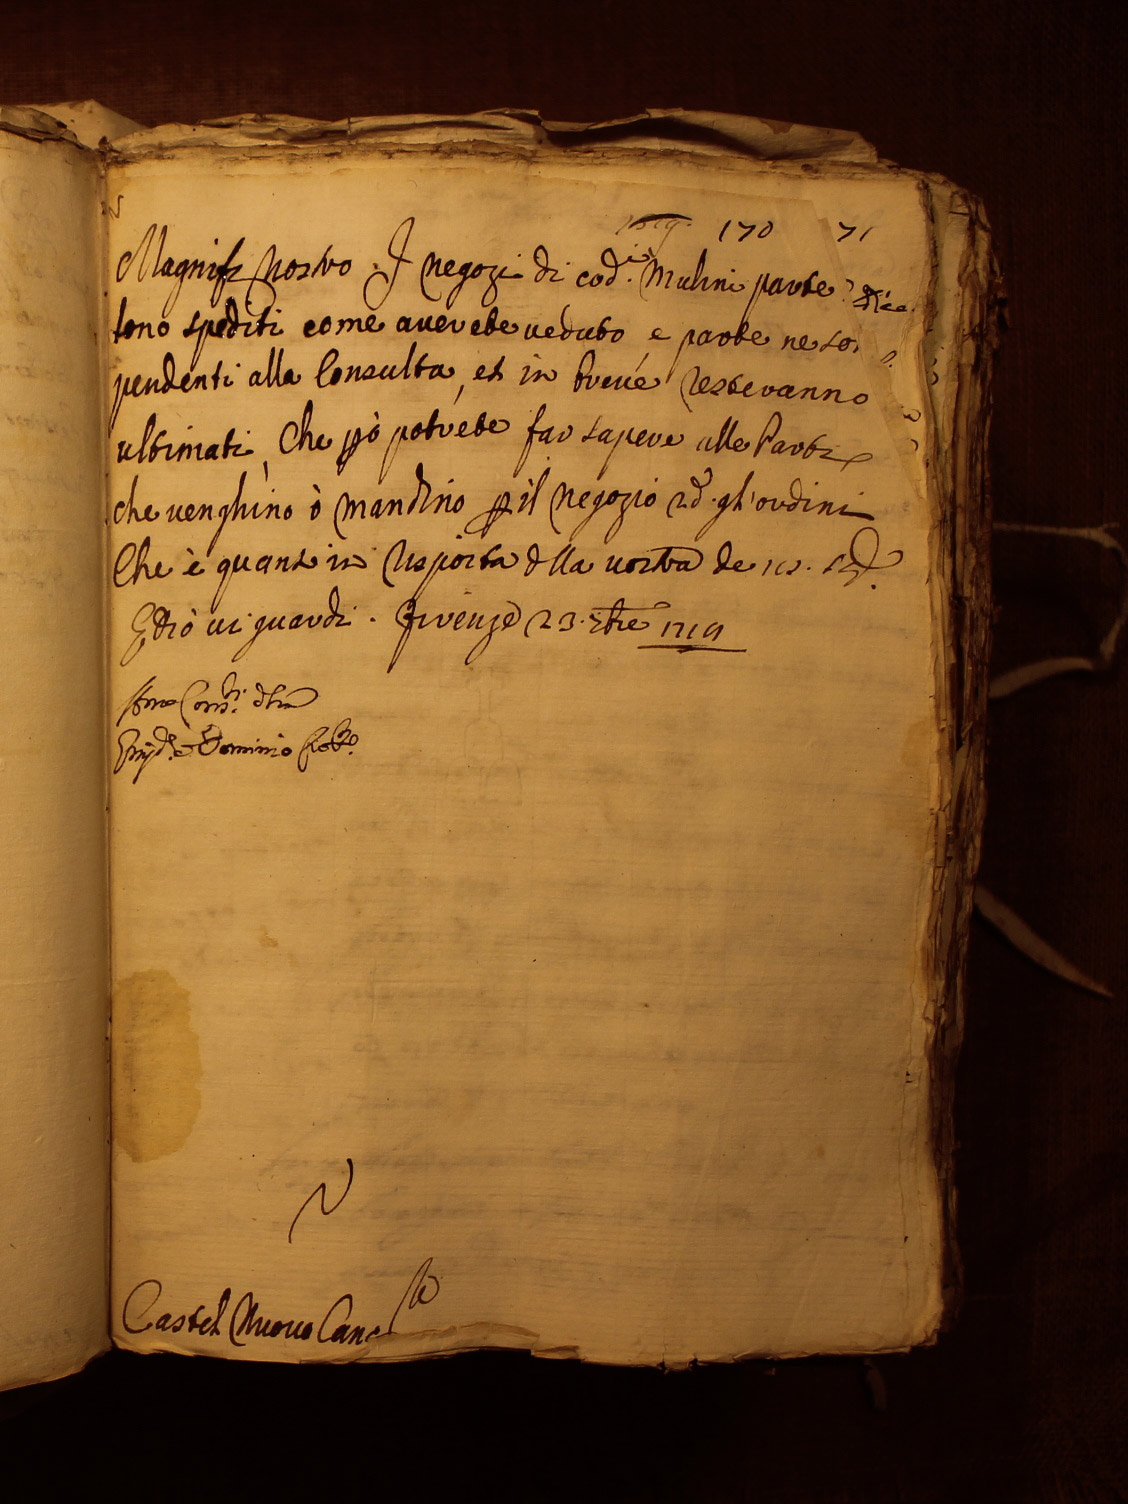 170 71
Magnif.co Nostro. I negozi di cod.i Mulini parte
sono spediti come averete veduto, e parte ne so
pendenti alla Consulta, et in breve resteranno
ultimati, Che però potrete far sapere alle Parti
che venghino ò mandino p il negozio ed gl'ordini
Che è quanto in risposta dlla vostra de
E Dio vi guardi. Firenze 23. 1719
Cons.ri
e Dominio
Castel Nuovo Canc